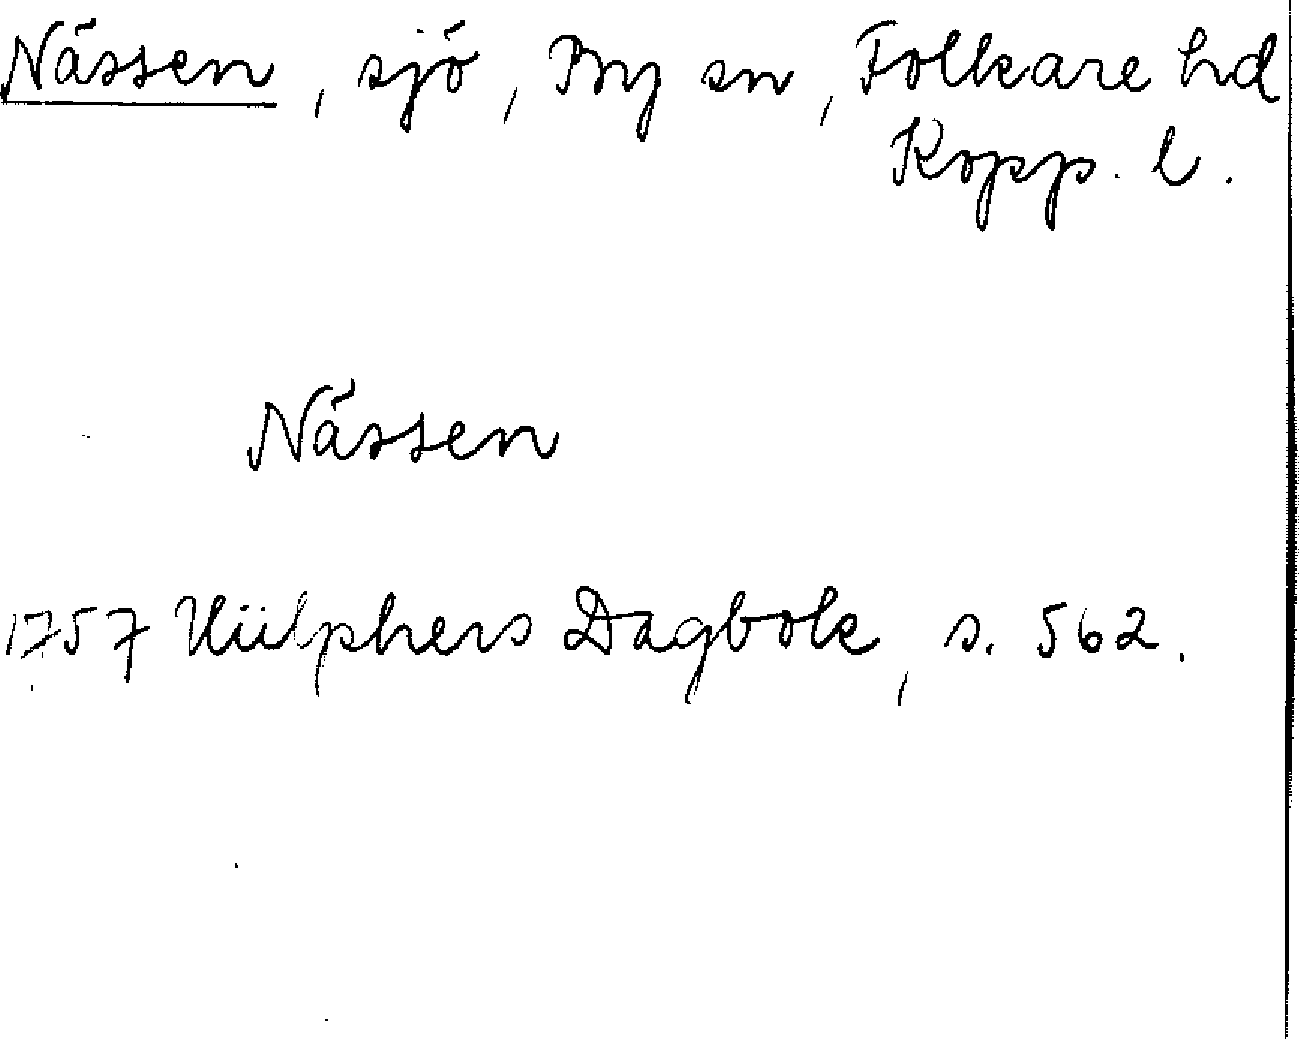 Nässen, sjö, By sn, Folkare hd
Kopp. l.
Nässen
1757 Hülphers Dagbok, s. 562.